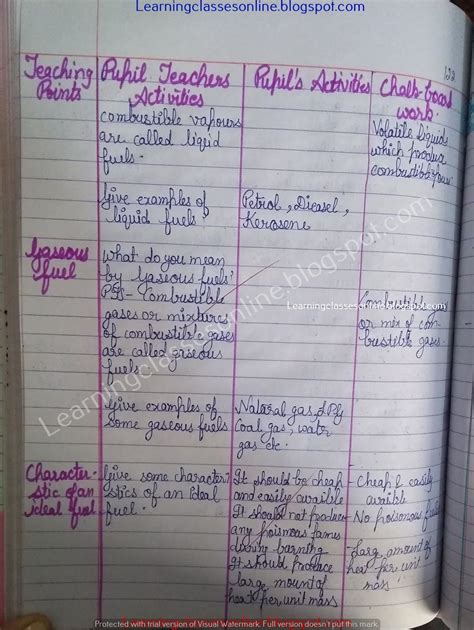 Learningclassesonline.blogspot.com
Teaching
Points
Pupil Teachers
Activities
Pupil's Activities
Chalk-board
work.
combustible vapours
are called liquid
fuels.
Volatile liquids
which produce
combustible
Give examples of
liquid fuels?
Petrol, Dieasel,
Kerosene
Gaseous
fuel
What do you mean
by Gaseous fuels?
PST- Combustible
gases or mixtures
of combustible gases
are called gaseous
fuels.
Combustible
or mix of com-
bustible gases.
Learningclassesonline.blogspot.com
Learningclassesonline.blogspot.com
Give examples of
some gaseous fuels
Natural gas, LPG
Coal gas, water
gas etc.
Character-
stic of an
ideal fuel
Give some character?
istics of an Ideal
fuel.
It should be cheap
and easily avaible
It should not produce
any poisnous fames
during barning
It should produce
large mount of
heat per unit mass
- Cheap & easily
avaible
- No poisonous
- Larg amount of
heat per unit
mass
Protected with trial version of Visual Watermark. Full version doesn't put this mark.